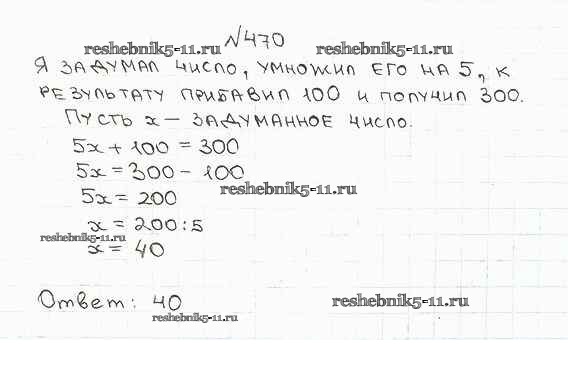 №470
resheebnik5-11.ru resheebnik5-11.ru
Я ЗАДУМАЛ ЧИСЛО, УМНОЖИЛ ЕГО НА 5, К
РЕЗУЛЬТАТУ ПРИБАВИЛ 100 И ПОЛУЧИЛ 300.
ПУСТЬ x – ЗАДУМАННОЕ ЧИСЛО.
5x + 100 = 300
5x = 300 - 100
reshebnik5-11.ru
5x = 200
x = 200 : 5
reshebnik5-11.ru
x = 40
Ответ: 40
reshebnik5-11.ru
reshebnik5-11.ru